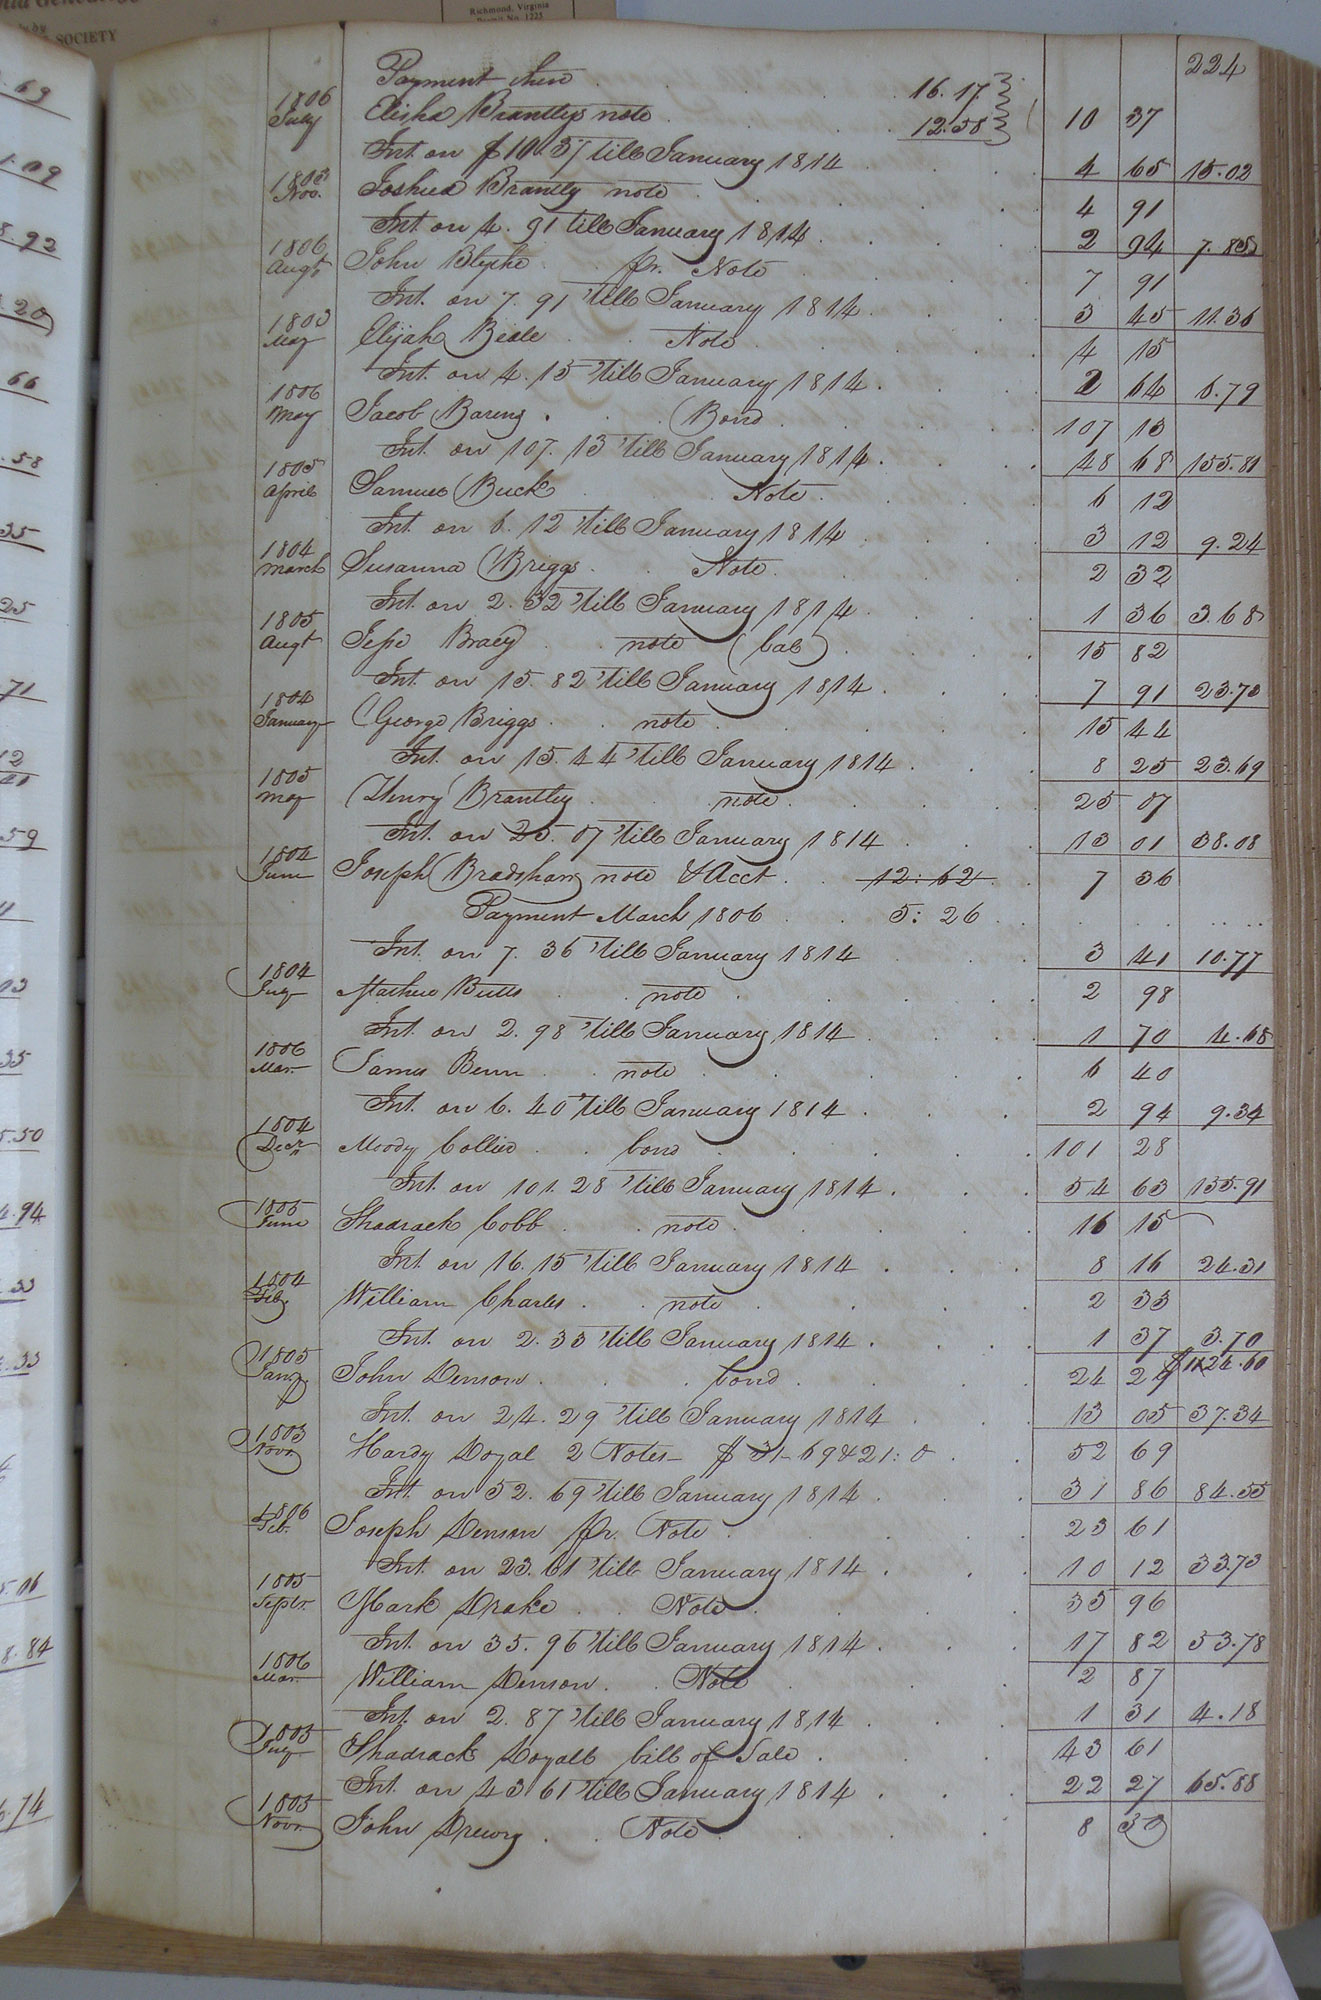 Richmond, Virginia
Permit No. 1225
SOCIETY
224
Payment then . . . 16.17
1806 July Elisha Brantleys note . . . 12.58 10 37
Int. on $10.37 till January 1814 . . 4 65 15.02
1803 Nov. Joshua Brantly note . . 4 91
Int on 4.91 till January 1814 . . 2 94 7.85
1806 Augt John Blythe jr. Note . . 7 91
Int. on 7.91 'till January 1814 . . 3 45 11.36
1803 May Elijah Beale Note . . 4 15
Int. on 4.15 'till January 1814 . . 2 64 6.79
1806 May Jacob Barens . Bond . . 107 13
Int. on 107.13 'till January 1814 . . 48 68 155.81
1805 April Samuel Buck Note . . 6 12
Int. on 6.12 'till January 1814 . . 3 12 9.24
1804 March Susanna Briggs . Note . . 2 32
Int. on 2.32 'till January 1814 . . 1 36 3.68
1805 Augt Jesse Bracy . note (bal) . . 15 82
Int. on 15.82 'till January 1814 . . 7 91 23.73
1804 January George Briggs . note . . 15 44
Int. on 15.44 'till January 1814 . . 8 25 23.69
1805 May Henry Brantley . note . . 25 07
Int. on 25.07 'till January 1814 . . 13 01 38.08
1804 June Joseph Bradshaw note & Acct . 12:62 . 7 36
Payment March 1806 . . 5:26
Int. on 7.36 'till January 1814 . . 3 41 10.77
1804 July Mathew Butts . note . . 2 98
Int. on 2.98 'till January 1814 . . 1 70 4.68
1806 Mar. James Benn . note . . 6 40
Int. on 6.40 'till January 1814 . . 2 94 9.34
1804 Decr Moody Collier . bond . . 101 28
Int. on 101.28 'till January 1814 . . 54 63 155.91
1805 June Shadrack Cobb . note . . 16 15
Int. on 16.15 'till January 1814 . . 8 16 24.31
1804 Feb. William Charles . note . . 2 33
Int. on 2.33 'till January 1814 . . 1 37 3.70
1805 Jany. John Denson . bond . . 24 29 $1124.60
Int. on 24.29 'till January 1814 . . 13 05 37.34
1803 Novr. Hardy Doyal 2 Notes - $31-69 & 21:0 . . 52 69
Int. on 52.69 'till January 1814 . . 31 86 84.55
1806 Feb. Joseph Denson jr. Note . . 23 61
Int. on 23.61 'till January 1814 . . 10 12 33.73
1805 Septr. Mark Drake . Note . . 35 96
Int. on 35.96 'till January 1814 . . 17 82 53.78
1806 Mar. William Denson . Note . . 2 87
Int. on 2.87 'till January 1814 . . 1 31 4.18
1805 July Shadrack Doyall bill of Sale . . 43 61
Int. on 43 61 till January 1814 . . 22 27 65.88
1803 Novr. John Drewry . Note . . 8 30